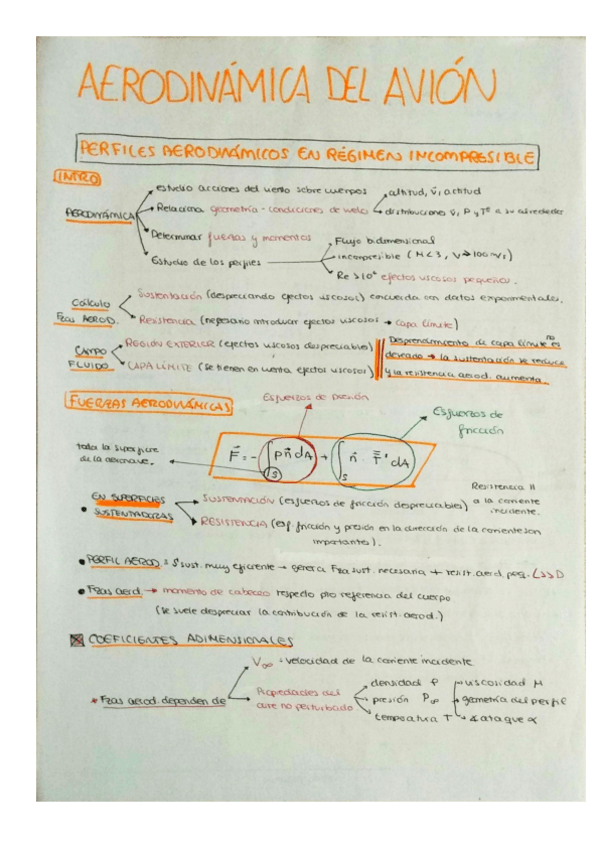 AERODINÁMICA DEL AVIÓN
PERFILES AERODINÁMICOS EN RÉGIMEN INCOMPRESIBLE
INTRO
AERODINÁMICA
estudio acciones del viento sobre cuerpos
Relaciona geometría - condiciones de vuelo
altitud, v, actitud
distribuciones v, P y Tª a su alrededor
Determinar fuerzas y momentos
Estudio de los perfiles
Flujo bidimensional
incompresible (M<.3, V≯100 m/s)
Re >10⁶ efectos viscosos pequeños.
Cálculo
Fzas AEROD.
Sustentación (despreciando efectos viscosos) concuerda con datos experimentales.
Resistencia (necesario introducir efectos viscosos → capa límite)
CAMPO
FLUIDO
REGIÓN EXTERIOR (efectos viscosos despreciables)
CAPA LÍMITE (se tienen en cuenta efectos viscosos)
Desprendimiento de capa límite no es
deseado → la sustentación se reduce
y la resistencia aerod. aumenta.
FUERZAS AERODINÁMICAS
Esfuerzos de presión
Esfuerzos de
fricción
toda la superficie
de la aeronave.
F⃗ = -∫S p n⃗ dA + ∫S n⃗ · τ̿' dA
EN SUPERFICIES
SUSTENTADORAS
SUSTENTACIÓN (esfuerzos de fricción despreciables)
Resistencia ||
a la corriente
incidente.
RESISTENCIA (esf. fricción y presión en la dirección de la corriente son
importantes).
PERFIL AEROD. = S sust. muy eficiente → genera Fza sust. necesaria + resist. aerd. peq. L>>D
Fzas aerd. → momento de cabeceo respecto pto referencia del cuerpo
(se suele despreciar la contribución de la resist. aerod.)
COEFICIENTES ADIMENSIONALES
* Fzas aerod. dependen de
V∞ = velocidad de la corriente incidente
Propiedades del
aire no perturbado
densidad ρ
presión P∞
temperatura T
viscosidad μ
geometría del perfil
∡ ataque α